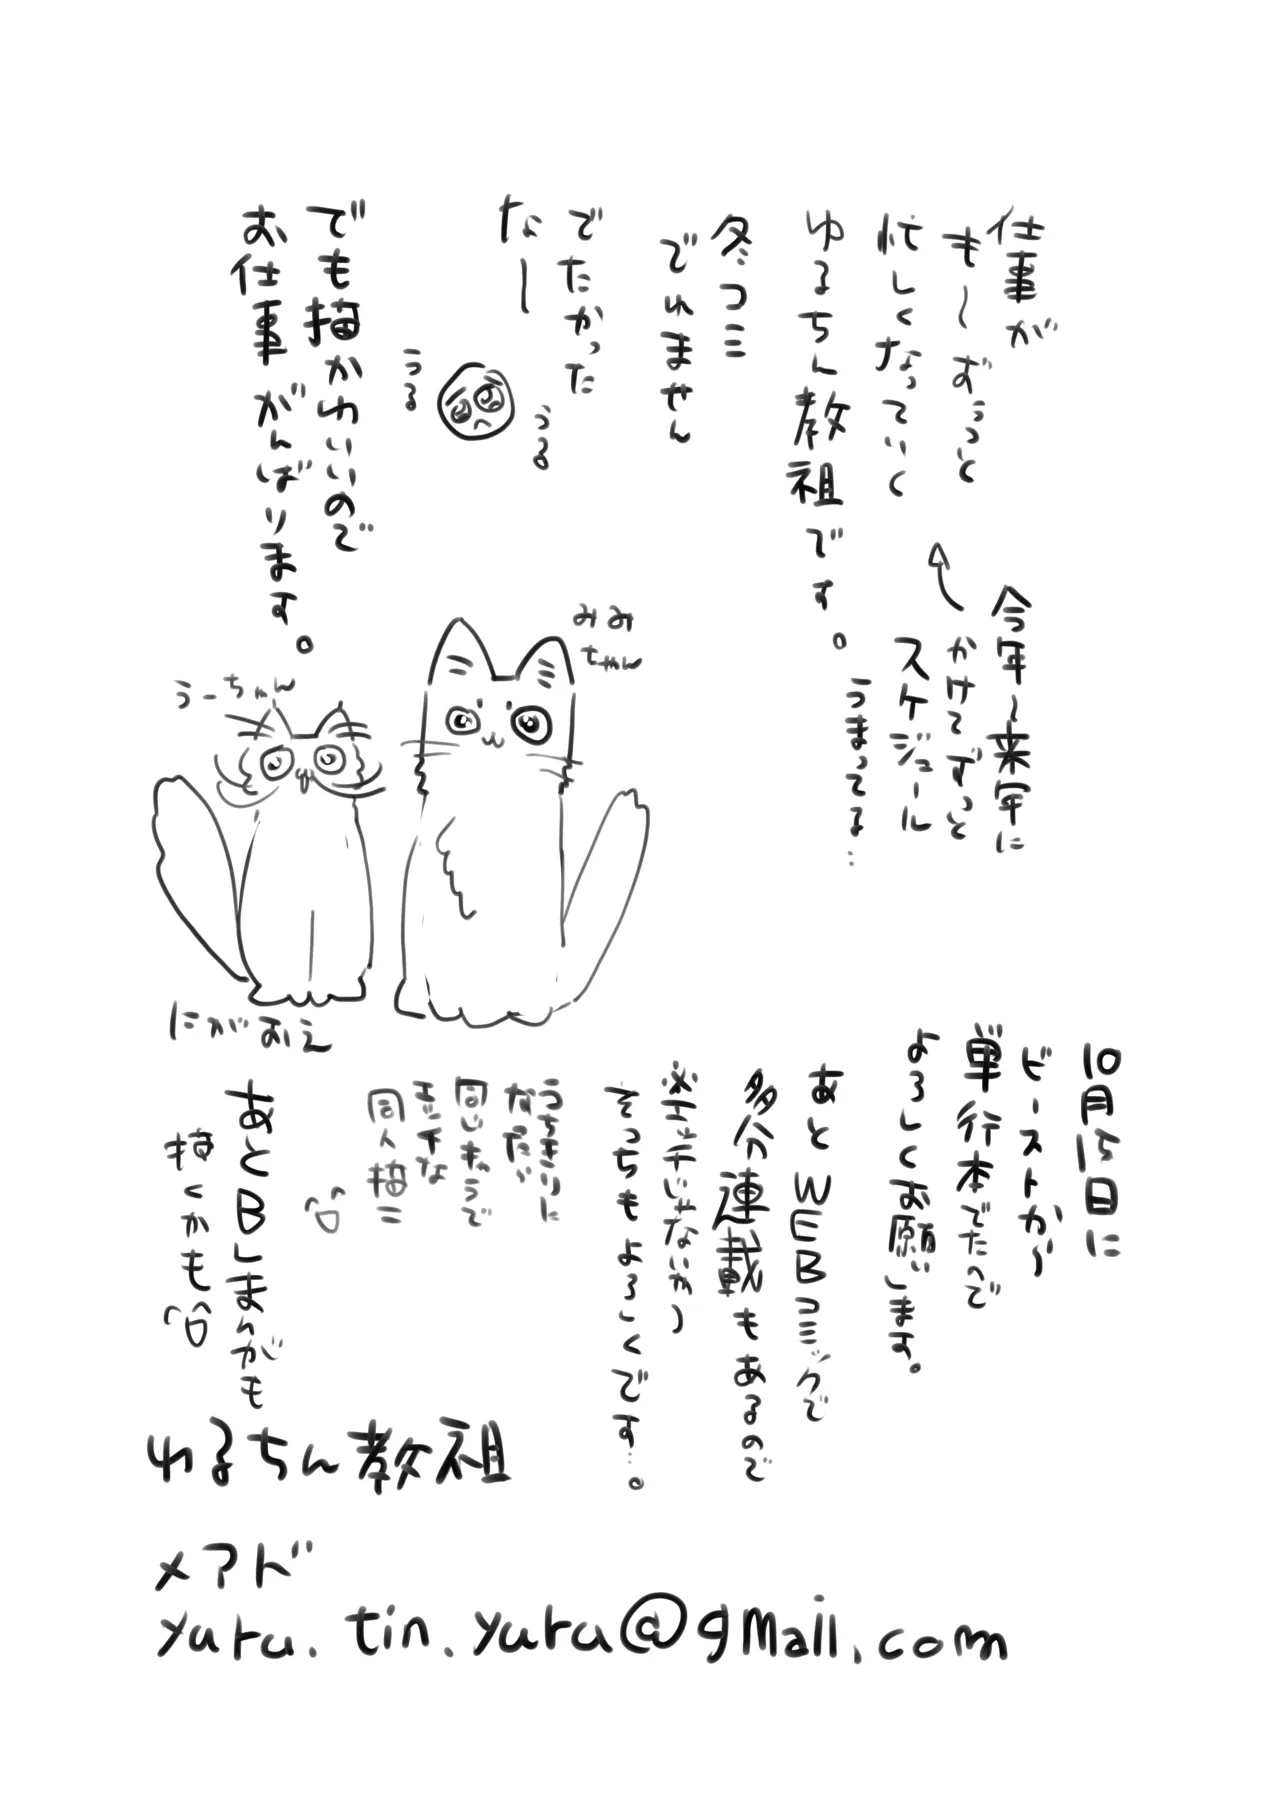 仕事が
も〜ずっと
忙しくなっていく
ゆるちん教祖です。
冬コミ
でれません
でたかった
なー
うる
うる
でも描かわいいので
お仕事がんばります。
今年〜来年に
かけてずっと
スケジュール
うまってる…
みみ
ちゃん
うーちゃん
にがおえ
10月15日に
ビーストから
単行本でたので
よろしくお願いします。
あとWEBコミックで
多分連載もあるので
※エッチじゃないやつ
そっちもよろしくです…。
うちきりに
なったら
同じキャラで
エッチな
同人描こ
あとBLまんがも
描くかも
ゆるちん教祖
メアド
yuru.tin.yuru@gmail.com